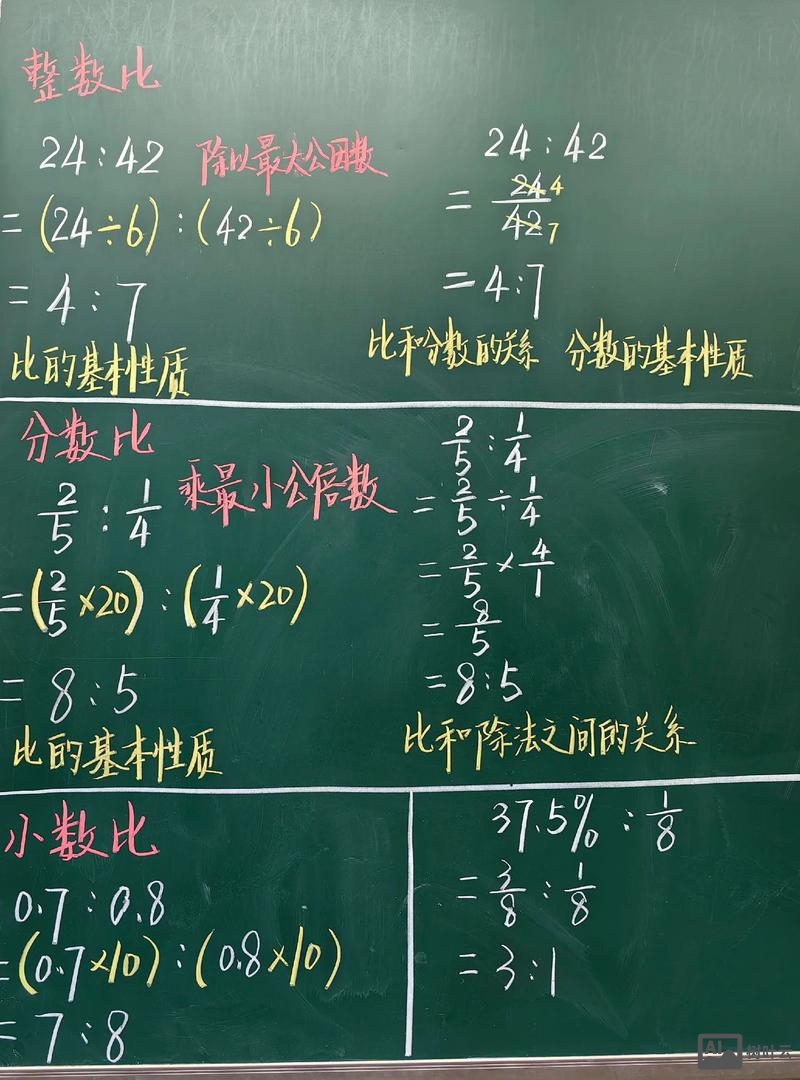 整数比
24:42 除以最大公因数
=(24÷6):(42÷6)
=4:7
比的基本性质
24:42
=24/42 4 7
=4:7
比和分数的关系 分数的基本性质
分数比
2/5:1/4 乘最小公倍数
=(2/5×20):(1/4×20)
=8:5
比的基本性质
2/5:1/4
=2/5÷1/4
=2/5×4/1
=8/5
=8:5
比和除法之间的关系
小数比
0.7:0.8
=(0.7×10):(0.8×10)
=7:8
37.5%:1/8
=3/8:1/8
=3:1
AI 树叶云